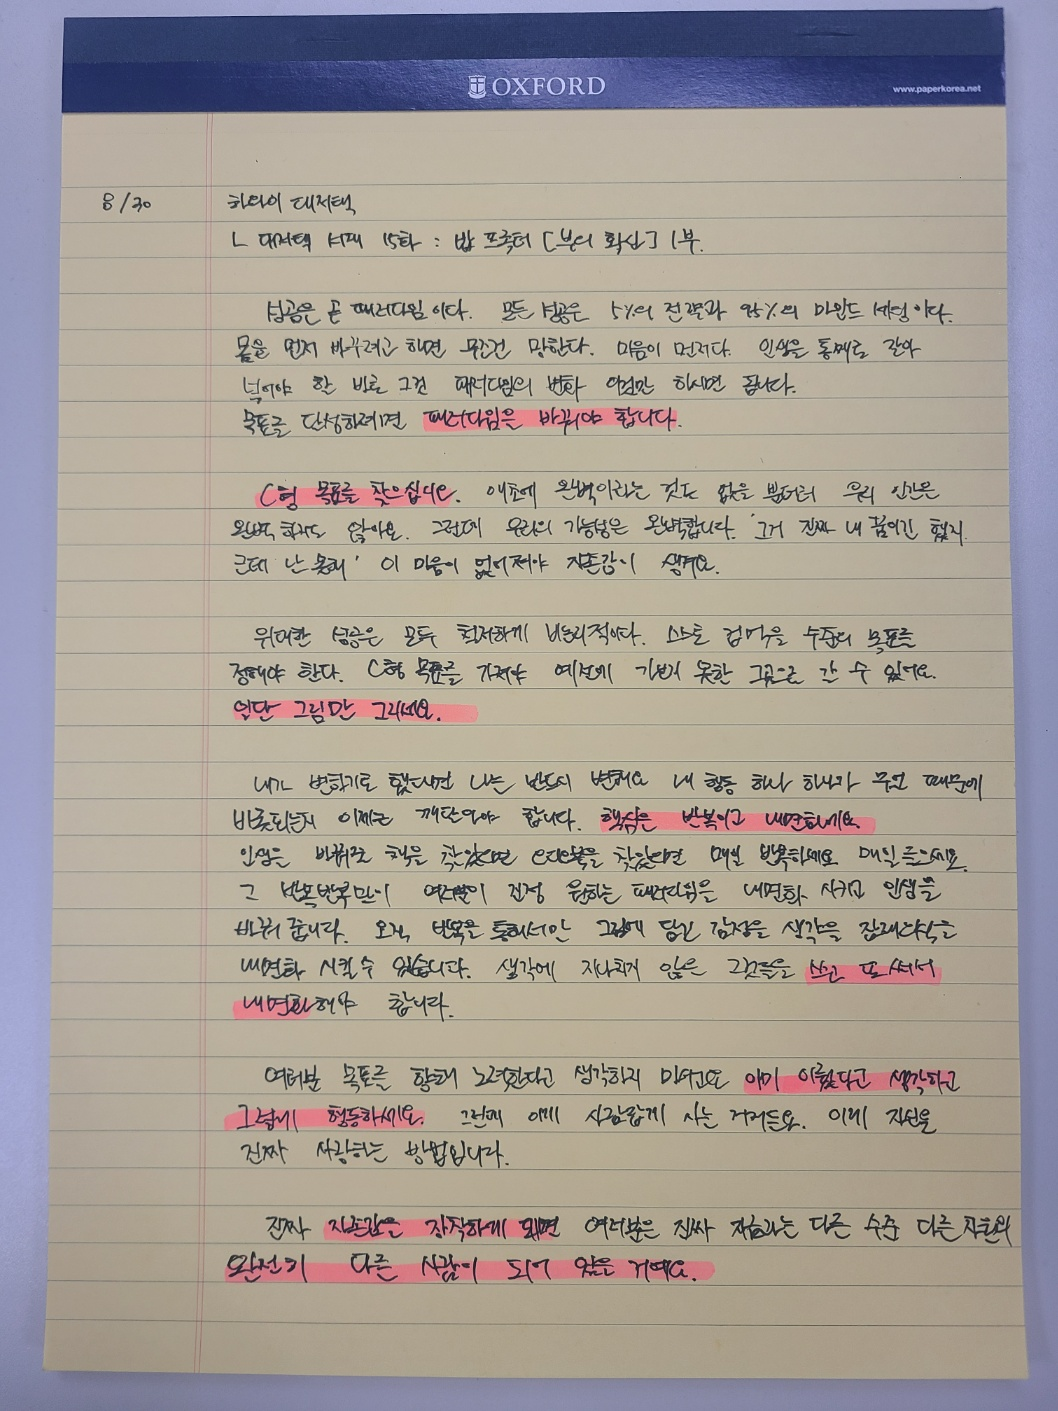 OXFORD
www.paperkorea.net
8/30 하와이 대저택
ㄴ 대저택 서재 15화 : 밥 프록터 [부의 확신] 1부.
성공은 곧 패러다임이다. 모든 성공은 5%의 전략과 95%의 마인드 세팅이다.
몸을 먼저 바꾸려고 하면 무조건 망한다. 마음이 먼저다. 인생을 통째로 갈아
넣어야 한 바로 그건 패러다임의 변화 이것만 하시면 됩니다.
목표를 달성하려면 패러다임을 바꿔야 합니다.
C형 목표를 찾으십시오. 애초에 완벽이라는 것도 없을 뿐더러 우리 인간은
완벽하지도 않아요. 그런데 우리의 가능성은 완벽합니다. '그거 진짜 내 꿈이긴 했지
근데 난 못해' 이 마음이 없어져야 자존감이 생겨요.
위대한 성공은 모두 철저하게 비논리적이다. 스스로 겁먹을 수준의 목표를
정해야 한다. C형 목표를 가져야 예전에 가보지 못한 그곳으로 갈 수 있어요.
일단 그림만 그리세요.
내가 변하기로 했다면 나는 반드시 변해요 내 행동 하나 하나가 무엇 때문에
비롯되는지 이제는 깨달아야 합니다. 핵심은 반복이고 내면화예요.
인생을 바꿔줄 책을 찾았다면 오디오북을 찾았다면 매일 반복하세요 매일 들으세요.
그 반복반복만이 여러분이 진정 원하는 패러다임을 내면화 시키고 인생을
바꿔 줍니다. 오직 반복을 통해서만 그림에 담긴 감정을 생각을 잠재의식을
내면화 시킬 수 있습니다. 생각에 지나치지 않은 그것들을 쓰고 또 써서
내면화해야 합니다.
여러분 목표를 향해 노력한다고 생각하지 마시고요 이미 이뤘다고 생각하고
그렇게 행동하세요. 그런게 이게 사람답게 사는 거거든요. 이게 자신을
진짜 사랑하는 방법입니다.
진짜 자존감을 장착하게 되면 여러분은 진짜 지금과는 다른 수준 다른 차원의
완전히 다른 사람이 되어 있을 거예요.